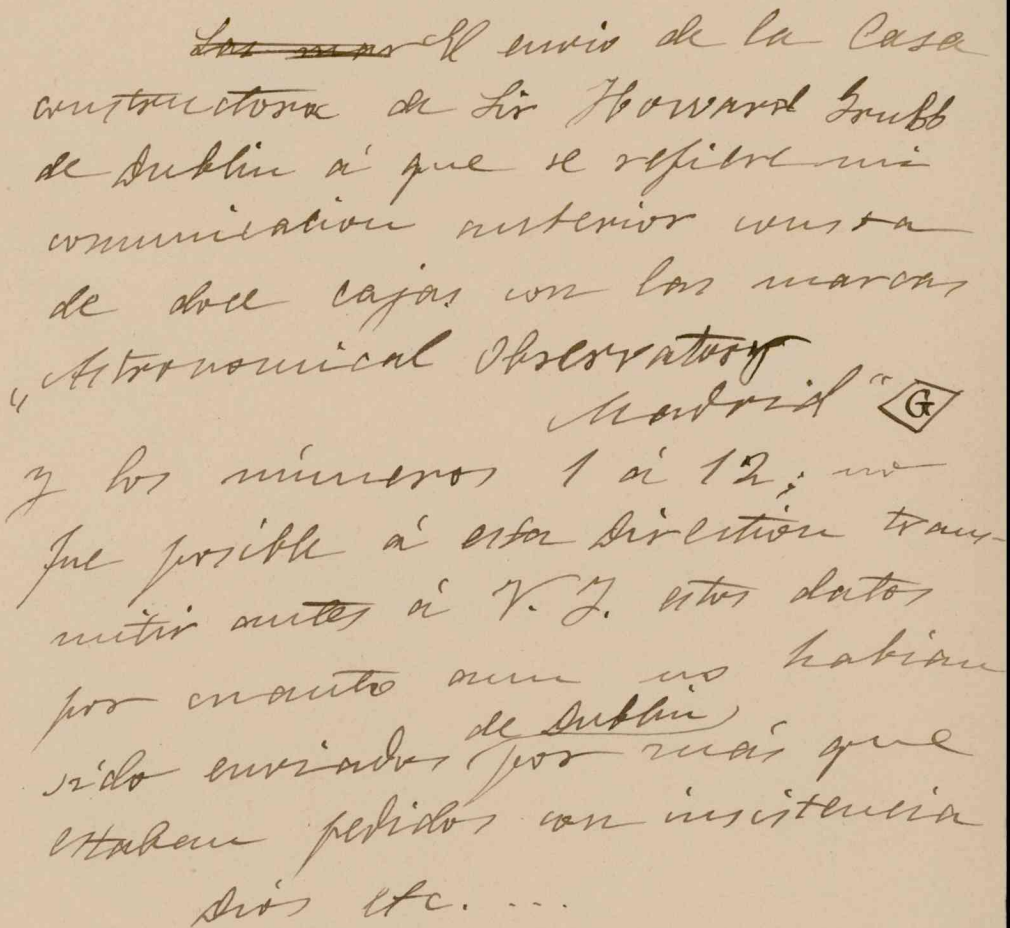 Las mar El envio de la Casa
constructora de Sir Howard Grubb
de Dublin á que se refiere mi
comunicación anterior consta
de doce cajas con las marcas
"Astronomical Observatory
Madrid" G
y los números 1 á 12; no
fue posible á esta Dirección trans-
mitir antes á V. I. estos datos
por cuanto aun no habian
sido enviados de Dublin por más que
estaban pedidos con insistencia
Dios etc. ...